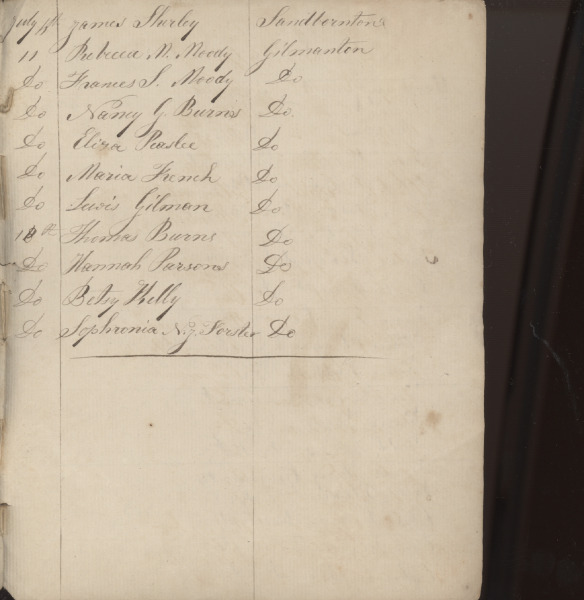 July 4th James Shirley Sandbornton
11 Rebecca M. Moody Gilmanton
Do Frances S. Moody Do
Do Nancy G. Burns Do
Do Eliza Peaslee Do
Do Maria French Do
Do Lewis Gilman Do
18th Thomas Burns Do
Do Hannah Parsons Do
Do Betsy Kelly Do
Do Sophronia N. J. Forster Do